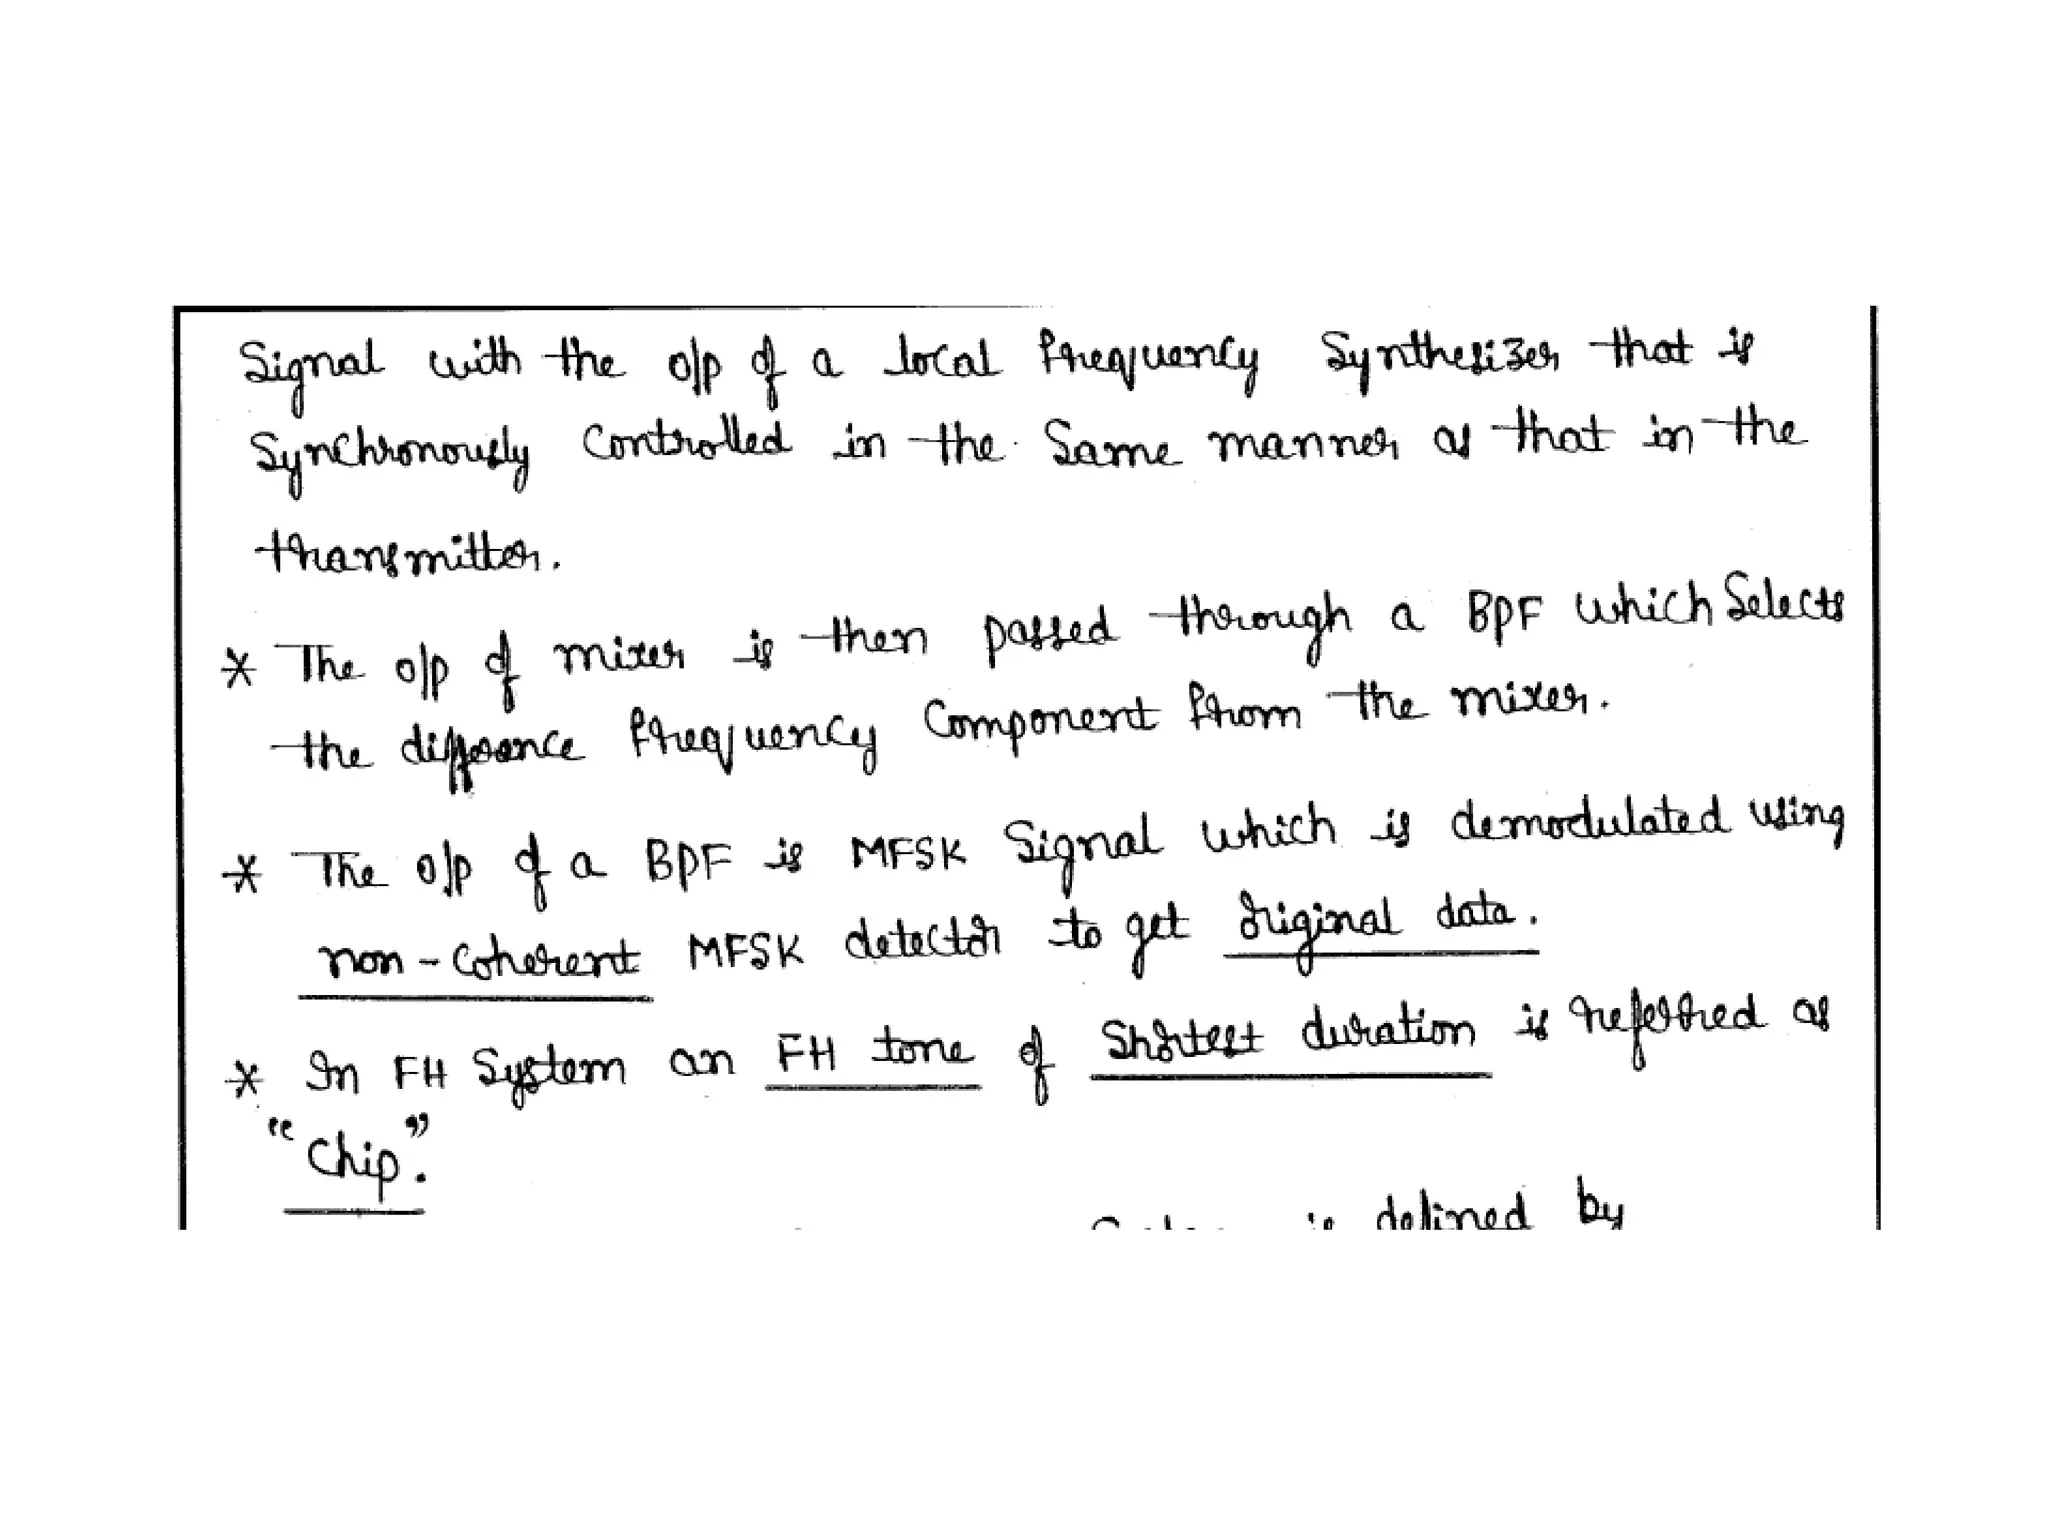 Signal with the o/p of a local frequency Synthesizer that is
Synchronously Controlled in the Same manner as that in the
transmitter.
* The o/p of mixer is then passed through a BPF which Selects
the difference frequency Component from the mixer.
* The o/p of a BPF is MFSK Signal which is demodulated using
non-Coherent MFSK detector to get original data.
* In FH System an FH tone of Shortest duration is referred as
"Chip".
is defined by